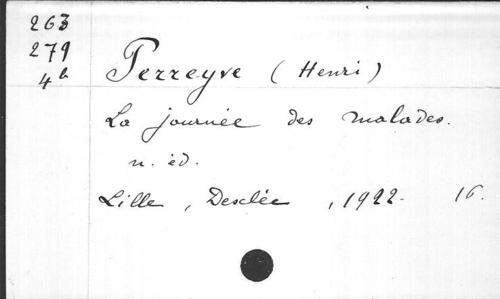 263
279
4b
Perreyve (Henri)
La journée des malades.
n. éd.
Lille, Desclée, 1922. 16.